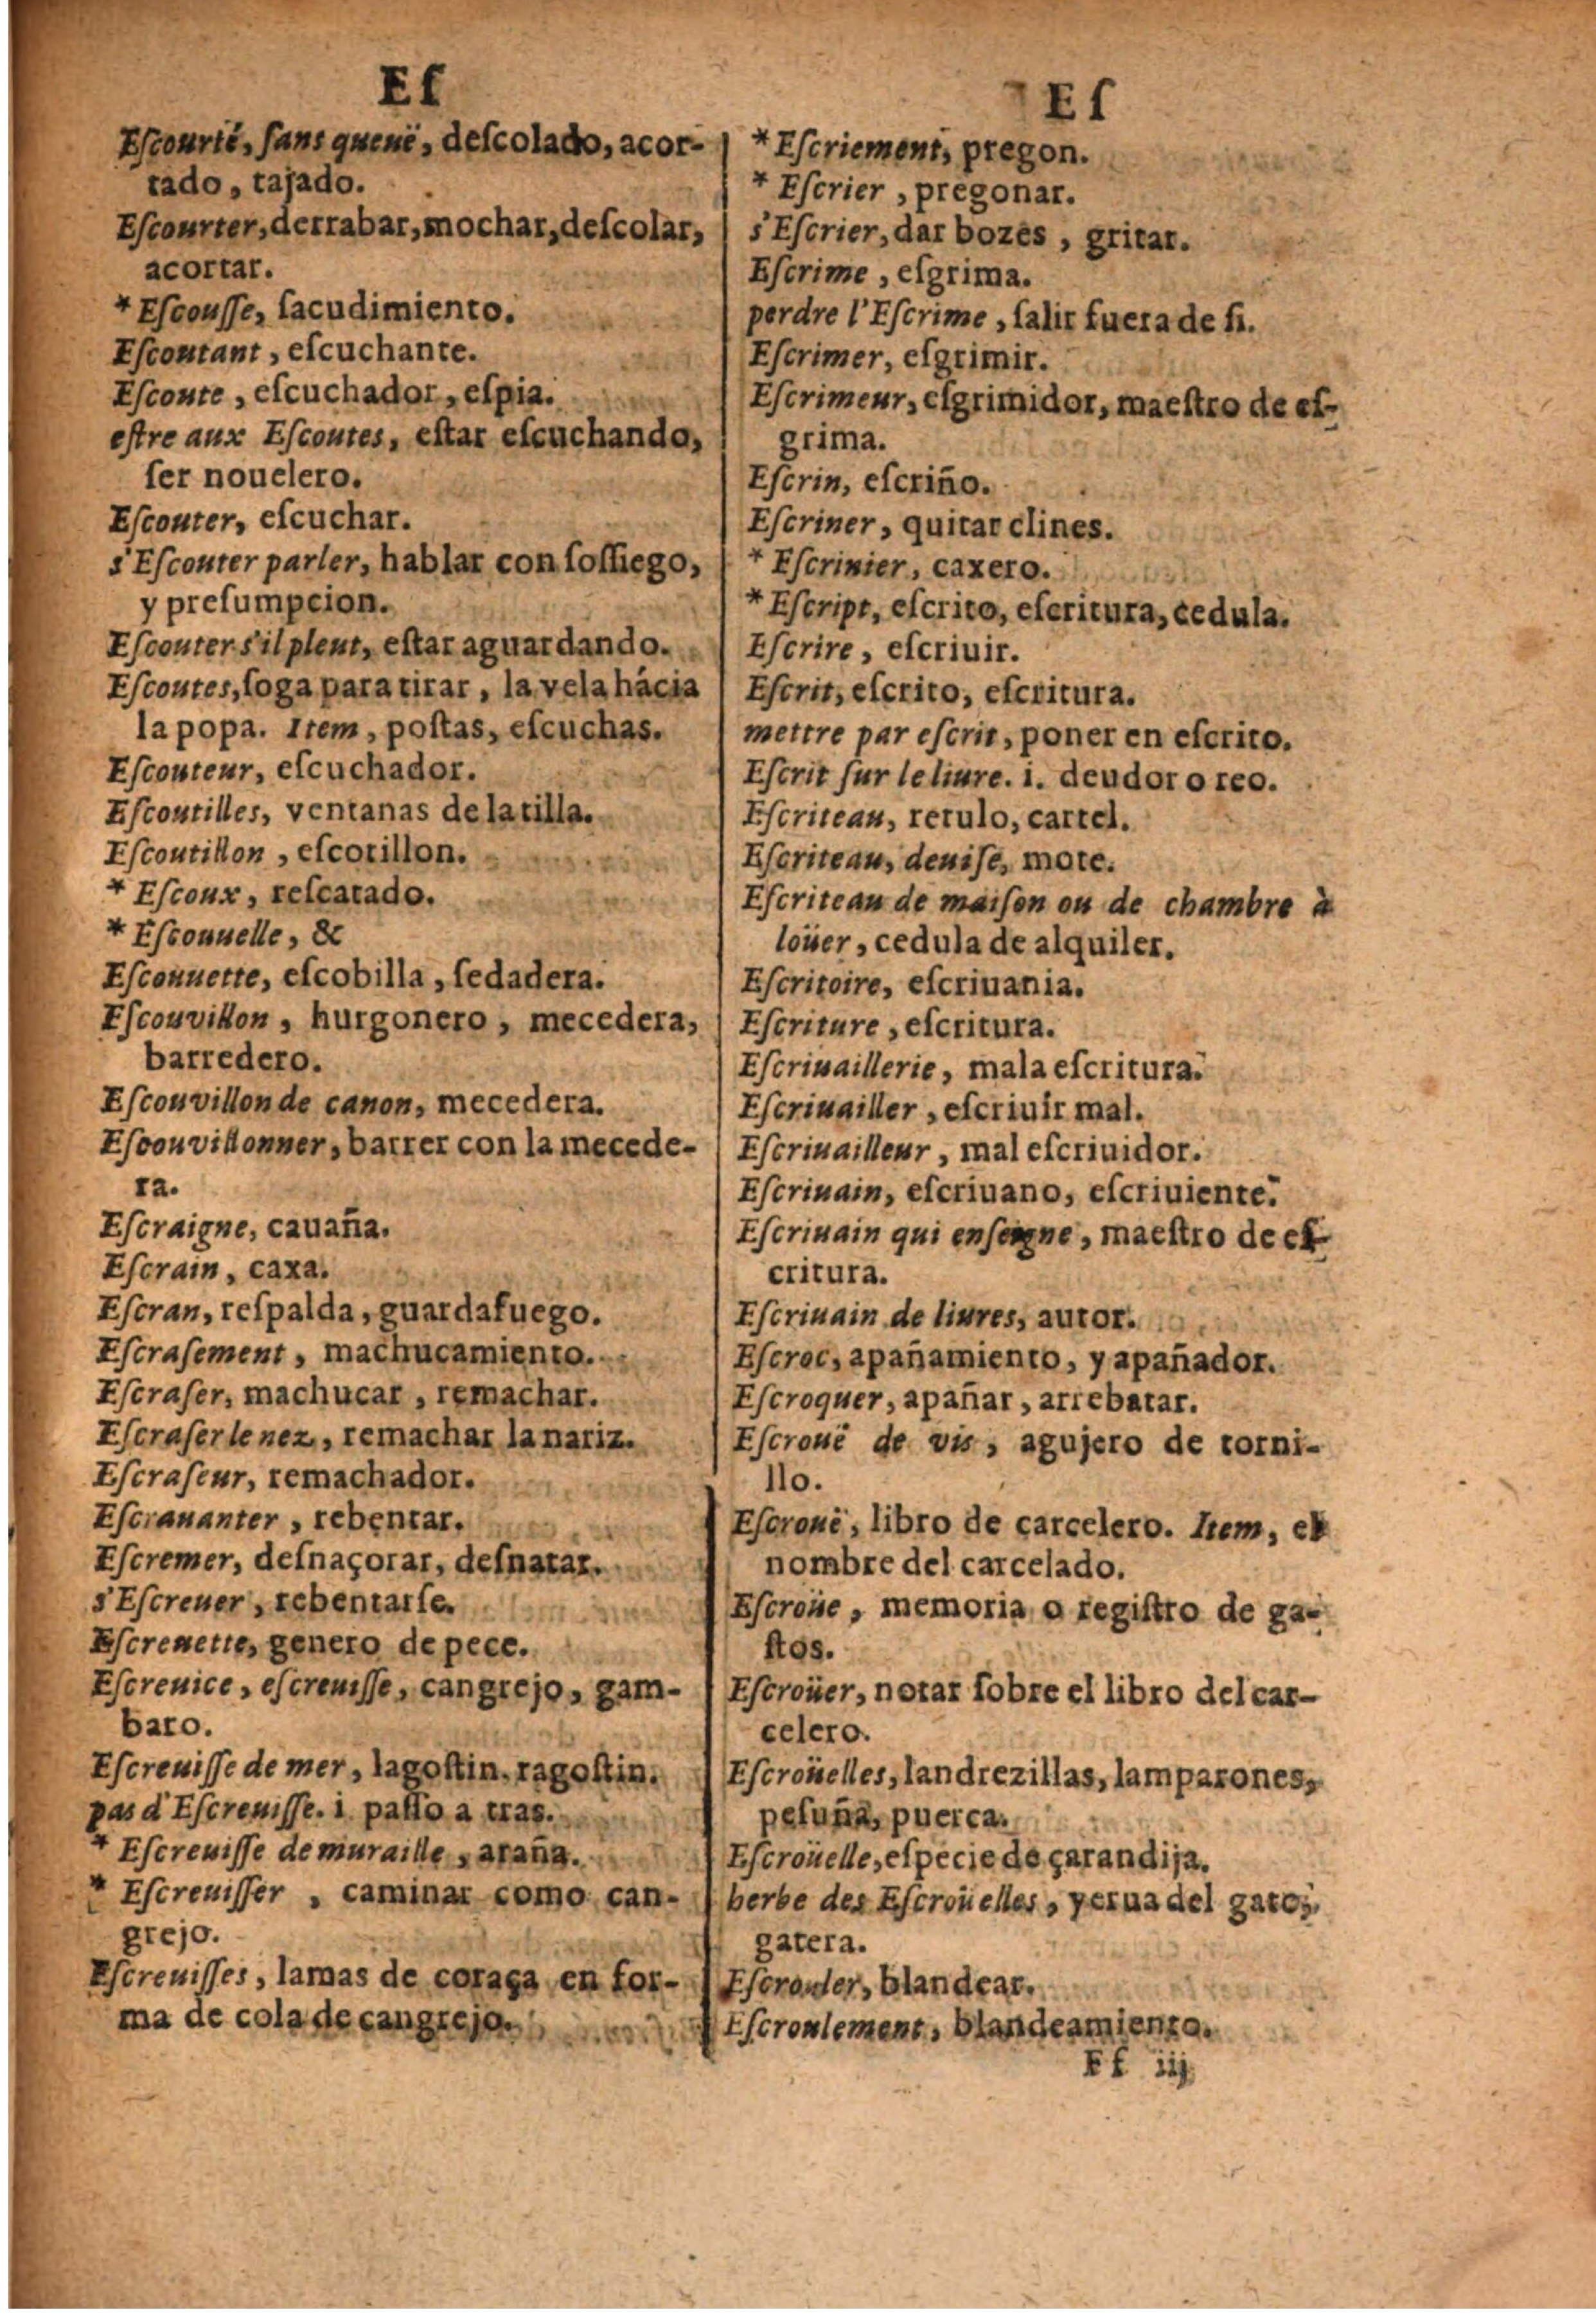 Eſ
Eſcourté, ſans queuë, deſcolado, acor-
tado, tajado.
Eſcourter, derrabar, mochar, deſcolar,
acortar.
* Eſcouſſe, ſacudimiento.
Eſcoutant, eſcuchante.
Eſcoute, eſcuchador, eſpia.
eſtre aux Eſcoutes, eſtar eſcuchando,
ſer nouelero.
Eſcouter, eſcuchar.
s'Eſcouter parler, hablar con ſoſſiego,
y preſumpcion.
Eſcouter s'il pleut, eſtar aguardando.
Eſcoutes, ſoga para tirar, la vela hácia
la popa. Item, poſtas, eſcuchas.
Eſcouteur, eſcuchador.
Eſcoutilles, ventanas de la tilla.
Eſcoutillon, eſcotillon.
* Eſcoux, reſcatado.
* Eſcouuelle, &
Eſcouuette, eſcobilla, ſedadera.
Eſcouvillon, hurgonero, mecedera,
barredero.
Eſcouvillon de canon, mecedera.
Eſcouvillonner, barrer con la mecede-
ra.
Eſcraigne, cauaña.
Eſcrain, caxa.
Eſcran, reſpalda, guardafuego.
Eſcraſement, machucamiento.
Eſcraſer, machucar, remachar.
Eſcraſer le nez, remachar la nariz.
Eſcraſeur, remachador.
Eſcrauanter, rebentar.
Eſcremer, deſnaçorar, deſnatar.
s'Eſcreuer, rebentarſe.
Eſcreuette, genero de pece.
Eſcreuice, eſcreuiſſe, cangrejo, gam-
baro.
Eſcreuiſſe de mer, lagoſtin. ragoſtin.
pas d'Eſcreuiſſe. i. paſſo a tras.
* Eſcreuiſſe de muraille, araña.
* Eſcreuiſſer, caminar como can-
grejo.
Eſcreuiſſes, lamas de coraça en for-
ma de cola de cangrejo.
Eſ
* Eſcriement, pregon.
* Eſcrier, pregonar.
s'Eſcrier, dar bozes, gritar.
Eſcrime, eſgrima.
perdre l'Eſcrime, ſalir fuera de ſi.
Eſcrimer, eſgrimir.
Eſcrimeur, eſgrimidor, maeſtro de eſ-
grima.
Eſcrin, eſcriño.
Eſcriner, quitar clines.
* Eſcrinier, caxero.
* Eſcript, eſcrito, eſcritura, cedula.
Eſcrire, eſcriuir.
Eſcrit, eſcrito, eſcritura.
mettre par eſcrit, poner en eſcrito.
Eſcrit ſur le liure. i. deudor o reo.
Eſcriteau, retulo, cartel.
Eſcriteau, deuiſe, mote.
Eſcriteau de maiſon ou de chambre à
loüer, cedula de alquiler.
Eſcritoire, eſcriuania.
Eſcriture, eſcritura.
Eſcriuaillerie, mala eſcritura.
Eſcriuailler, eſcriuir mal.
Eſcriuailleur, mal eſcriuidor.
Eſcriuain, eſcriuano, eſcriuiente.
Eſcriuain qui enſeigne, maeſtro de eſ-
critura.
Eſcriuain de liures, autor.
Eſcroc, apañamiento, y apañador.
Eſcroquer, apañar, arrebatar.
Eſcrouë de vis, agujero de torni-
llo.
Eſcrouë, libro de carcelero. Item, el
nombre del carcelado.
Eſcroüe, memoria o regiſtro de ga-
ſtos.
Eſcroüer, notar ſobre el libro del car-
celero.
Eſcroüelles, landrezillas, lamparones,
peſuña, puerca.
Eſcroüelle, eſpecie de çarandija.
herbe des Eſcroüelles, yerua del gato,
gatera.
Eſcrouler, blandear.
Eſcroulement, blandeamiento.
Ff iij